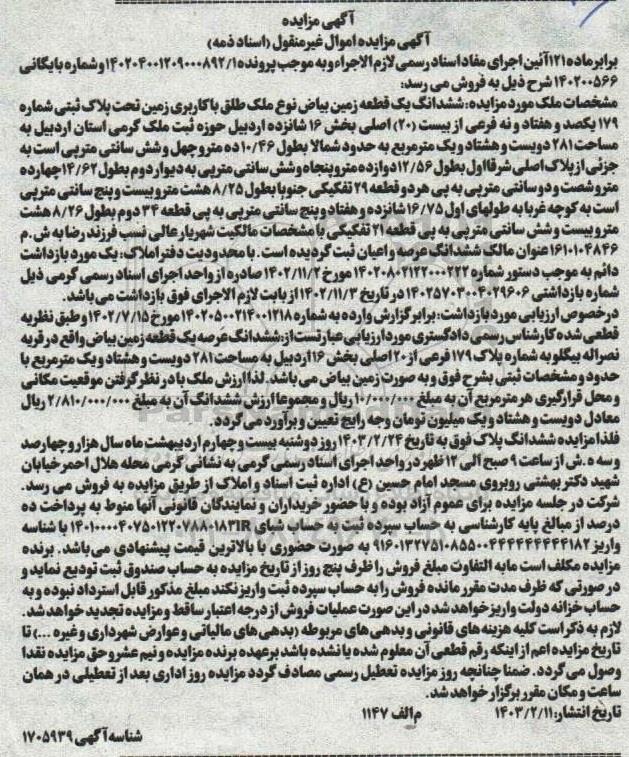 آگهی مزایده
آگهی مزایده اموال غیرمنقول (اسناد ذمه)
برابر ماده ۱۲۱ آئین اجرای مفاد اسناد رسمی لازم الاجراء و به موجب پرونده ۱۴۰۲۰۴۰۰۱۲۰۹۰۰۰۸۹۲/۱ و شماره بایگانی
۱۴۰۲۰۰۵۶۶ شرح ذیل به فروش می رسد:
مشخصات ملک مورد مزایده: ششدانگ یک قطعه زمین بیاض نوع ملک طلق با کاربری زمین تحت پلاک ثبتی شماره
۱۷۹ یکصد و هفتاد و نه فرعی از بیست (۲۰) اصلی بخش ۱۶ شانزده اردبیل حوزه ثبت ملک گرمی استان اردبیل به
مساحت ۲۸۱ دویست و هشتاد و یک مترمربع به حدود شمالا بطول ۱۰/۴۶ ده متر و چهل و شش سانتی متر پی است به
جزئی از پلاک اصلی شرقا اول بطول ۱۲/۵۶ دوازده متر و پنجاه و شش سانتی متر پی به دیوار دوم بطول ۱۴/۶۲ چهارده
متر و شصت و دو سانتی متر پی به پی هر دو قطعه ۲۹ تفکیکی جنوبا بطول ۸/۲۵ هشت متر و بیست و پنج سانتی متر پی
است به کوچه غربا به طولهای اول ۱۶/۷۵ شانزده و هفتاد و پنج سانتی متر پی به پی قطعه ۳۳ دوم بطول ۸/۲۶ هشت
متر و بیست و شش سانتی متر پی به پی قطعه ۲۱ تفکیکی با مشخصات مالکیت شهریار عالی نسب فرزند رضا به ش.م
۱۶۱۰۱۰۴۸۴۶ عنوان مالک ششدانگ عرصه و اعیان ثبت گردیده است. با محدودیت دفتر املاک: یک مورد بازداشت
دائم به موجب دستور شماره ۱۴۰۲۰۸۰۲۱۲۲۰۰۰۲۲۲ مورخ ۱۴۰۲/۱۱/۲ صادره از واحد اجرای اسناد رسمی گرمی ذیل
شماره بازداشتی ۱۴۰۲۵۷۰۳۰۰۴۰۲۹۶۰۶ در تاریخ ۱۴۰۲/۱۱/۳ از بابت لازم الاجرای فوق بازداشت می باشد.
درخصوص ارزیابی مورد بازداشت: برابر گزارش وارده به شماره ۱۴۰۲۰۵۰۰۲۱۴۰۰۱۲۱۸ مورخ ۱۴۰۲/۷/۱۵ و طبق نظریه
قطعی شده کارشناس رسمی دادگستری مورد ارزیابی عبارتست از: ششدانگ عرصه یک قطعه زمین بیاض واقع در قریه
نصراله بیگلو به شماره پلاک ۱۷۹ فرعی از ۲۰ اصلی بخش ۱۶ اردبیل به مساحت ۲۸۱ دویست و هشتاد و یک مترمربع با
حدود و مشخصات ثبتی بشرح فوق و به صورت زمین بیاض می باشد. لذا ارزش ملک با در نظر گرفتن موقعیت مکانی
و محل قرارگیری هر مترمربع آن به مبلغ ۱۰/۰۰۰/۰۰۰ ریال و مجموعا ارزش ششدانگ آن به مبلغ ۲/۸۱۰/۰۰۰/۰۰۰ ریال
معادل دویست و هشتاد و یک میلیون تومان وجه رایج تعیین و برآورد می گردد.
فلذا مزایده ششدانگ پلاک فوق به تاریخ ۱۴۰۳/۲/۲۴ روز دوشنبه بیست و چهارم اردیبهشت ماه سال هزار و چهارصد
و سه ه.ش از ساعت ۹ صبح الی ۱۲ ظهر در واحد اجرای اسناد رسمی گرمی به نشانی گرمی محله هلال احمر خیابان
شهید دکتر بهشتی روبروی مسجد امام حسین (ع) اداره ثبت اسناد و املاک از طریق مزایده به فروش می رسد.
شرکت در جلسه مزایده برای عموم آزاد بوده و با حضور خریداران و نمایندگان قانونی آنها منوط به پرداخت ده
درصد از مبالغ پایه کارشناسی به حساب سپرده ثبت به حساب شبای ۱۴۰۱۰۰۰۰۴۰۷۵۰۱۲۲۰۷۸۸۰۱۸۳IR با شناسه
واریز ۹۱۶۰۱۳۲۷۵۱۰۸۵۵۰۰۴۴۴۴۴۴۴۴۴۴۱۸۲ به صورت حضوری با بالاترین قیمت پیشنهادی می باشد. برنده
مزایده مکلف است مابه التفاوت مبلغ فروش را ظرف پنج روز از تاریخ مزایده به حساب صندوق ثبت تودیع نماید و
در صورتی که ظرف مدت مقرر مانده فروش را به حساب سپرده ثبت واریز نکند مبلغ مذکور قابل استرداد نبوده و به
حساب خزانه دولت واریز خواهد شد در این صورت عملیات فروش از درجه اعتبار ساقط و مزایده تجدید خواهد شد.
لازم به ذکر است کلیه هزینه های قانونی و بدهی های مربوطه (بدهی های مالیاتی و عوارض شهرداری و غیره ...) تا
تاریخ مزایده اعم از اینکه رقم قطعی آن معلوم شده یا نشده باشد برعهده برنده مزایده و نیم عشر و حق مزایده نقدا
وصول می گردد. ضمنا چنانچه روز مزایده تعطیل رسمی مصادف گردد مزایده روز اداری بعد از تعطیلی در همان
ساعت و مکان مقرر برگزار خواهد شد.
تاریخ انتشار: ۱۴۰۳/۲/۱۱ م الف ۱۱۴۷
شناسه آگهی ۱۷۰۵۹۳۹